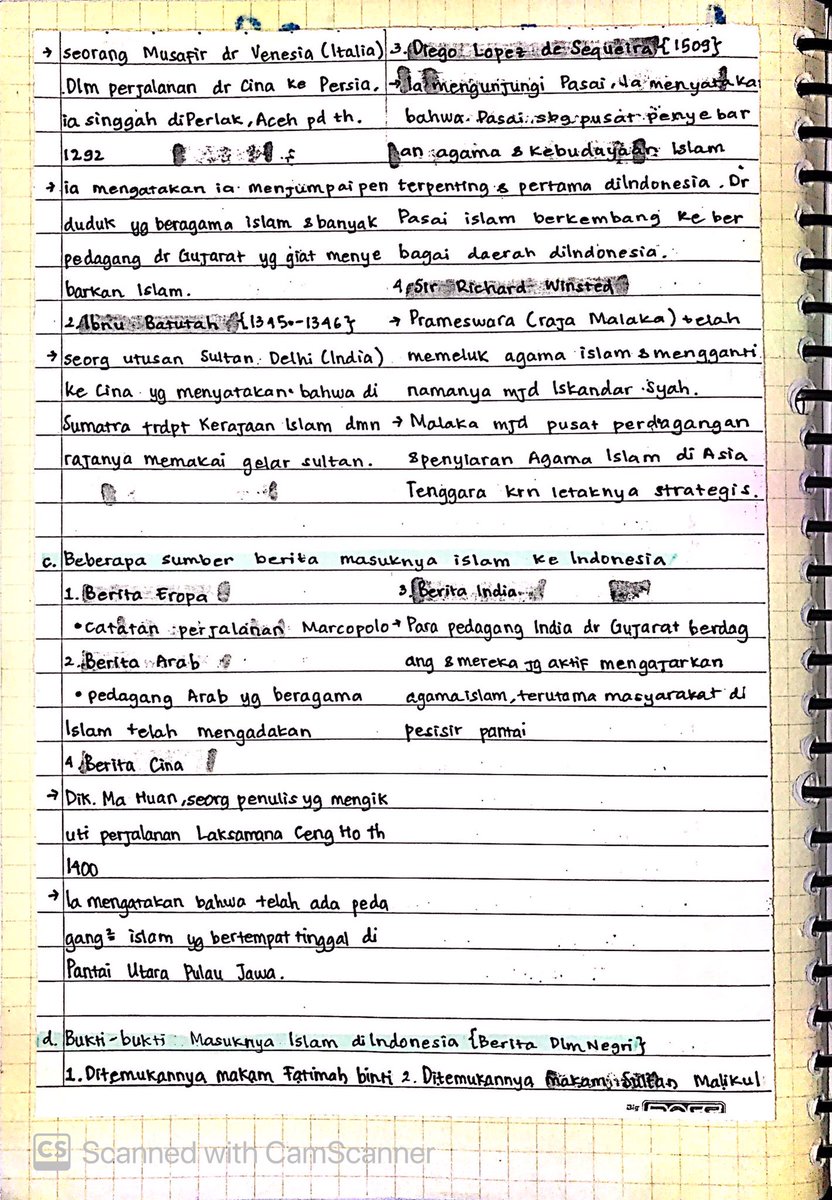 → seorang Musafir dr Venesia (Italia)
Dlm perjalanan dr Cina ke Persia,
ia singgah diPerlak, Aceh pd th.
1292
→ ia mengatakan ia menjumpai pen
duduk yg beragama islam & banyak
pedagang dr Gujarat yg giat menye
barkan Islam.
2. Ibnu Batutah {1345-1346}
→ seorg utusan Sultan Delhi (India)
ke Cina yg menyatakan bahwa di
Sumatra trdpt Kerajaan Islam dmn
rajanya memakai gelar sultan.
3. Diego Lopez de Sequeira {1509}
→ Ia mengunjungi Pasai, Ia menyataka
bahwa Pasai sbg pusat penyebar
an agama & kebudayaan Islam
terpenting & pertama diIndonesia. Dr
Pasai islam berkembang ke ber
bagai daerah diIndonesia.
4. Sir Richard Winsted
→ Prameswara (raja Malaka) telah
memeluk agama islam & mengganti
namanya mjd Iskandar Syah.
→ Malaka mjd pusat perdagangan
& penyiaran Agama Islam di Asia
Tenggara krn letaknya strategis.
c. Beberapa sumber berita masuknya islam ke Indonesia
1. Berita Eropa
• catatan perjalanan Marcopolo
2. Berita Arab
• pedagang Arab yg beragama
Islam telah mengadakan
3. Berita India
→ Para pedagang India dr Gujarat berdag
ang & mereka jg aktif mengajarkan
agama islam, terutama masyarakat di
pesisir pantai
4 Berita Cina
→ Dik. Ma Huan, seorg penulis yg mengik
uti perjalanan Laksamana Ceng Ho th
1400
→ Ia mengatakan bahwa telah ada peda
gang² islam yg bertempat tinggal di
Pantai Utara Pulau Jawa.
d. Bukti-bukti Masuknya Islam diIndonesia {Berita Dlm Negri}
1. Ditemukannya makam Fatimah binti
2. Ditemukannya makam Sultan Malikul
CS Scanned with CamScanner